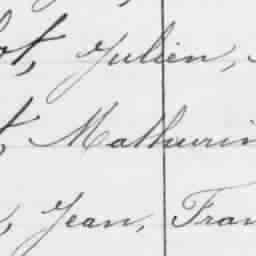 ot, Julien,
t, Mathurin
, Jean, Fran